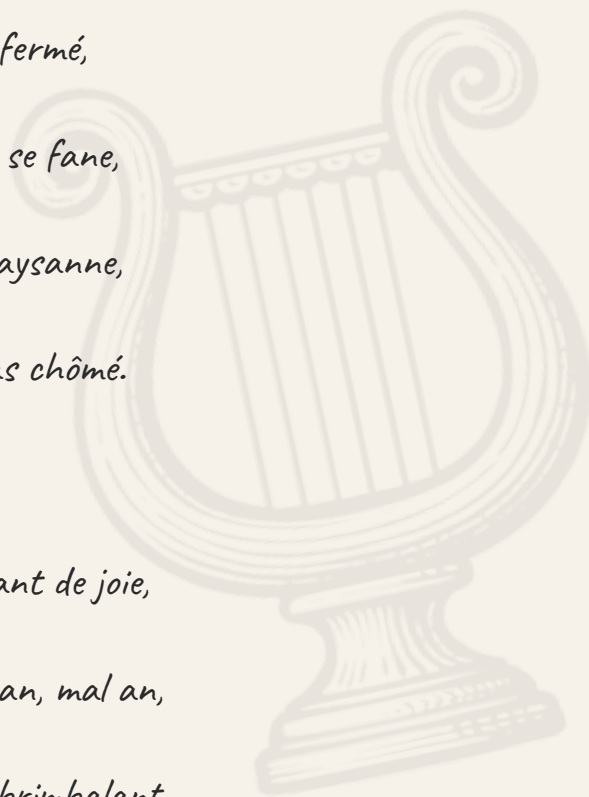 fermé,
se fane,
aysanne,
s chômé.
ant de joie,
an, mal an,
brimbalant